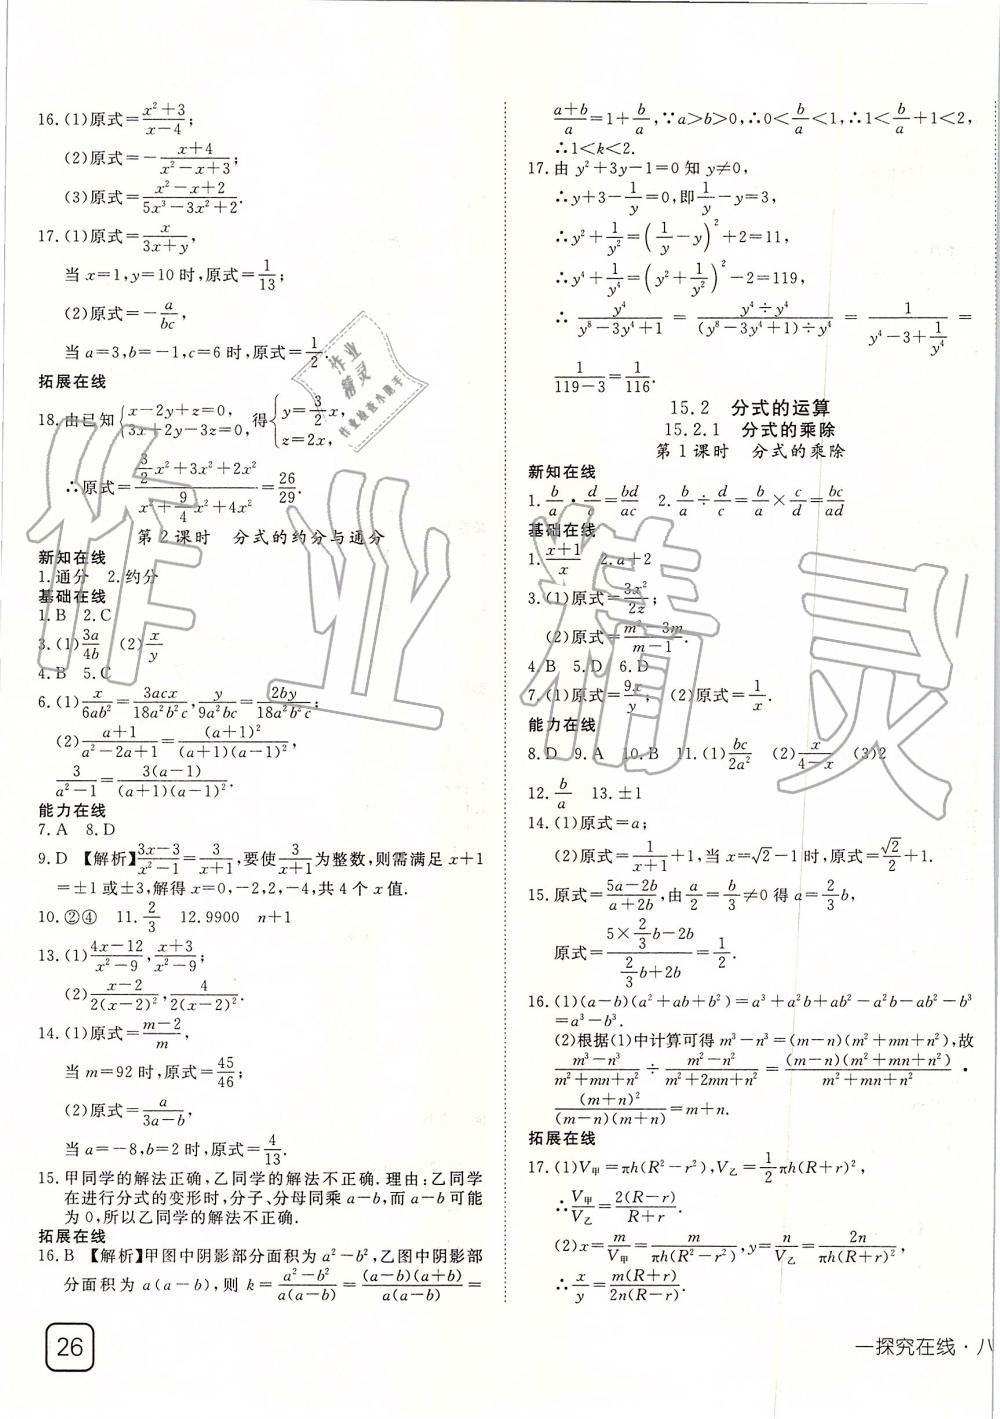 16.(1)原式=\frac{x²+3}{x-4};
(2)原式=-\frac{x+4}{x²-x+3};
(3)原式=\frac{x²-x+2}{5x³-3x²+2}.
17.(1)原式=\frac{x}{3x+y},
当 x=1,y=10 时,原式=\frac{1}{13};
(2)原式=-\frac{a}{bc},
当 a=3,b=-1,c=6 时,原式=\frac{1}{2}.
拓展在线
18.由已知{x-2y+z=0, 3x+2y-3z=0,得{y=\frac{3}{2}x, z=2x,
∴原式=\frac{\frac{3}{2}x²+3x²+2x²}{x²+\frac{9}{4}x²+4x²}=\frac{26}{29}.
第 2 课时 分式的约分与通分
新知在线
1.通分 2.约分
基础在线
1.B 2.C
3.(1)\frac{3a}{4b} (2)\frac{x}{y}
4.B 5.C
6.(1)\frac{x}{6ab²}=\frac{3acx}{18a²b²c},\frac{y}{9a²bc}=\frac{2by}{18a²b²c};
(2)\frac{a+1}{a²-2a+1}=\frac{(a+1)²}{(a+1)(a-1)²},
\frac{3}{a²-1}=\frac{3(a-1)}{(a+1)(a-1)²}.
能力在线
7.A 8.D
9.D 【解析】\frac{3x-3}{x²-1}=\frac{3}{x+1},要使\frac{3}{x+1}为整数,则需满足 x+1
=±1或±3,解得 x=0,-2,2,-4,共 4 个 x 值.
10.②④ 11.\frac{2}{3} 12.9900 n+1
13.(1)\frac{4x-12}{x²-9},\frac{x+3}{x²-9};
(2)\frac{x-2}{2(x-2)²},\frac{4}{2(x-2)²}.
14.(1)原式=\frac{m-2}{m},
当 m=92 时,原式=\frac{45}{46};
(2)原式=\frac{a}{3a-b},
当 a=-8,b=2 时,原式=\frac{4}{13}.
15.甲同学的解法正确,乙同学的解法不正确.理由:乙同学
在进行分式的变形时,分子、分母同乘 a-b,而 a-b 可能
为 0,所以乙同学的解法不正确.
拓展在线
16.B 【解析】甲图中阴影部分面积为 a²-b²,乙图中阴影部
分面积为 a(a-b),则 k=\frac{a²-b²}{a(a-b)}=\frac{(a-b)(a+b)}{a(a-b)}=
26
\frac{a+b}{a}=1+\frac{b}{a},∵a>b>0,∴0<\frac{b}{a}<1,∴1<\frac{b}{a}+1<2,
∴1<k<2.
17.由 y²+3y-1=0 知 y≠0,
∴y+3-\frac{1}{y}=0,即\frac{1}{y}-y=3,
∴y²+\frac{1}{y²}=(\frac{1}{y}-y)²+2=11,
∴y⁴+\frac{1}{y⁴}=(y²+\frac{1}{y²})²-2=119,
∴\frac{y⁴}{y⁸-3y⁴+1}=\frac{y⁴÷y⁴}{(y⁸-3y⁴+1)÷y⁴}=\frac{1}{y⁴-3+\frac{1}{y⁴}}=
\frac{1}{119-3}=\frac{1}{116}.
15.2 分式的运算
15.2.1 分式的乘除
第 1 课时 分式的乘除
新知在线
1.\frac{b}{a}·\frac{d}{c}=\frac{bd}{ac} 2.\frac{b}{a}÷\frac{d}{c}=\frac{b}{a}×\frac{c}{d}=\frac{bc}{ad}
基础在线
1.\frac{x+1}{x} 2.a+2
3.(1)原式=\frac{3x²}{2z};
(2)原式=\frac{m²-3m}{m-1}.
4.B 5.D 6.D
7.(1)原式=\frac{9x}{y}; (2)原式=\frac{1}{x}.
能力在线
8.D 9.A 10.B 11.(1)\frac{bc}{2a²} (2)\frac{x}{4-x} (3)2
12.\frac{b}{a} 13.±1
14.(1)原式=a;
(2)原式=\frac{1}{x+1}+1,当 x=√2-1 时,原式=\frac{√2}{2}+1.
15.原式=\frac{5a-2b}{a+2b},由\frac{a}{2}=\frac{b}{3}≠0 得 a=\frac{2}{3}b,
原式=\frac{5×\frac{2}{3}b-2b}{\frac{2}{3}b+2b}=\frac{1}{2}.
16.(1)(a-b)(a²+ab+b²)=a³+a²b+ab²-a²b-ab²-b³
=a³-b³.
(2)根据(1)中计算可得 m³-n³=(m-n)(m²+mn+n²),故
\frac{m³-n³}{m²+mn+n²}÷\frac{m²-n²}{m²+2mn+n²}=\frac{(m-n)(m²+mn+n²)}{m²+mn+n²}·
\frac{(m+n)²}{(m-n)(m+n)}=m+n.
拓展在线
17.(1)V甲=πh(R²-r²),V乙=\frac{1}{2}πh(R+r)²,
∴\frac{V甲}{V乙}=\frac{2(R-r)}{R+r}.
(2)x=\frac{m}{V甲}=\frac{m}{πh(R²-r²)},y=\frac{n}{V乙}=\frac{2n}{πh(R+r)²},
∴\frac{x}{y}=\frac{m(R+r)}{2n(R-r)}.
一探究在线·八
作业精灵
作业
精灵
作业检查小能手